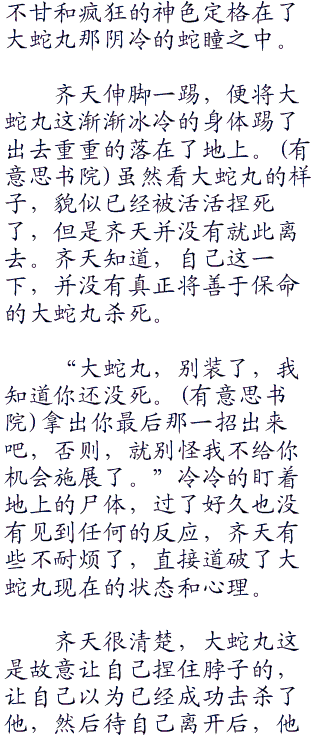 不甘和疯狂的神色定格在了
大蛇丸那阴冷的蛇瞳之中。
齐天伸脚一踢，便将大
蛇丸这渐渐冰冷的身体踢了
出去重重的落在了地上。(有
意思书院)虽然看大蛇丸的样
子，貌似已经被活活捏死
了，但是齐天并没有就此离
去。齐天知道，自己这一
下，并没有真正将善于保命
的大蛇丸杀死。
“大蛇丸，别装了，我
知道你还没死。(有意思书
院)拿出你最后那一招出来
吧，否则，就别怪我不给你
机会施展了。”冷冷的盯着
地上的尸体，过了好久也没
有见到任何的反应，齐天有
些不耐烦了，直接道破了大
蛇丸现在的状态和心理。
齐天很清楚，大蛇丸这
是故意让自己捏住脖子的，
让自己以为已经成功击杀了
他，然后待自己离开后，他